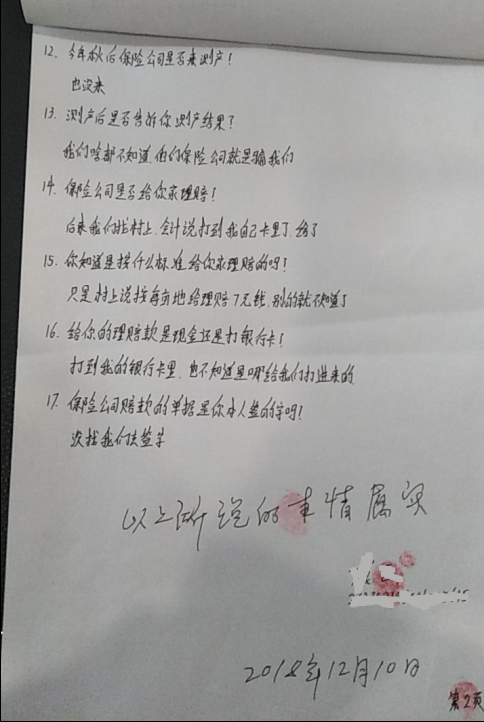 12. 今年秋后保险公司是否来测产!
也没来
13. 测产后是否告诉你测产结果?
我们啥都不知道,他们保险公司就是骗我们
14. 保险公司是否给你家理赔!
后来我们找村上,会计说打到我自己卡里了,给了
15. 你知道是按什么标准给你家理赔的吗?
只是村上说按每亩地给理赔7元钱,别的就不知道了
16. 给你的理赔款是现金还是打银行卡!
打到我的银行卡里,也不知道是哪给我们打进来的
17. 保险公司赔款的单据是你本人签的字吗?
没找我们去签字
以上所说的事情属实
2018年12月10日
第2页